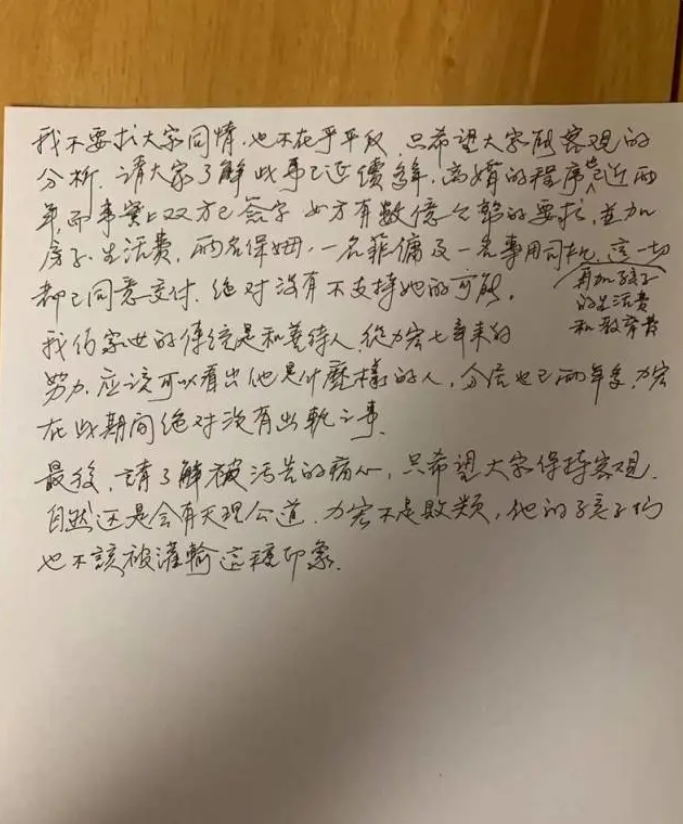 我不要求大家同情,也不在乎平反,只希望大家能客观的
分析。请大家了解此事已延續多年,离婚的程序也已近两
年,而事實上双方已簽字,女方有数億台幣的要求,並加
房子、生活费,两名保姆,一名菲傭及一名專用司机,這一切
再加孩子
的生活费
和教育费
都已同意交付,绝对没有不支持她的可能。
我们家世的傳統是和善待人,從力宏七年来的
努力,应该可以看出他是什麼樣的人,分居也已两年多,力宏
在此期间绝对没有出軌之事。
最後,請了解被污蔑的痛心,只希望大家保持客观,
自然还是会有天理公道,力宏不是敗类,他的孩子们
也不該被灌輸這種印象。